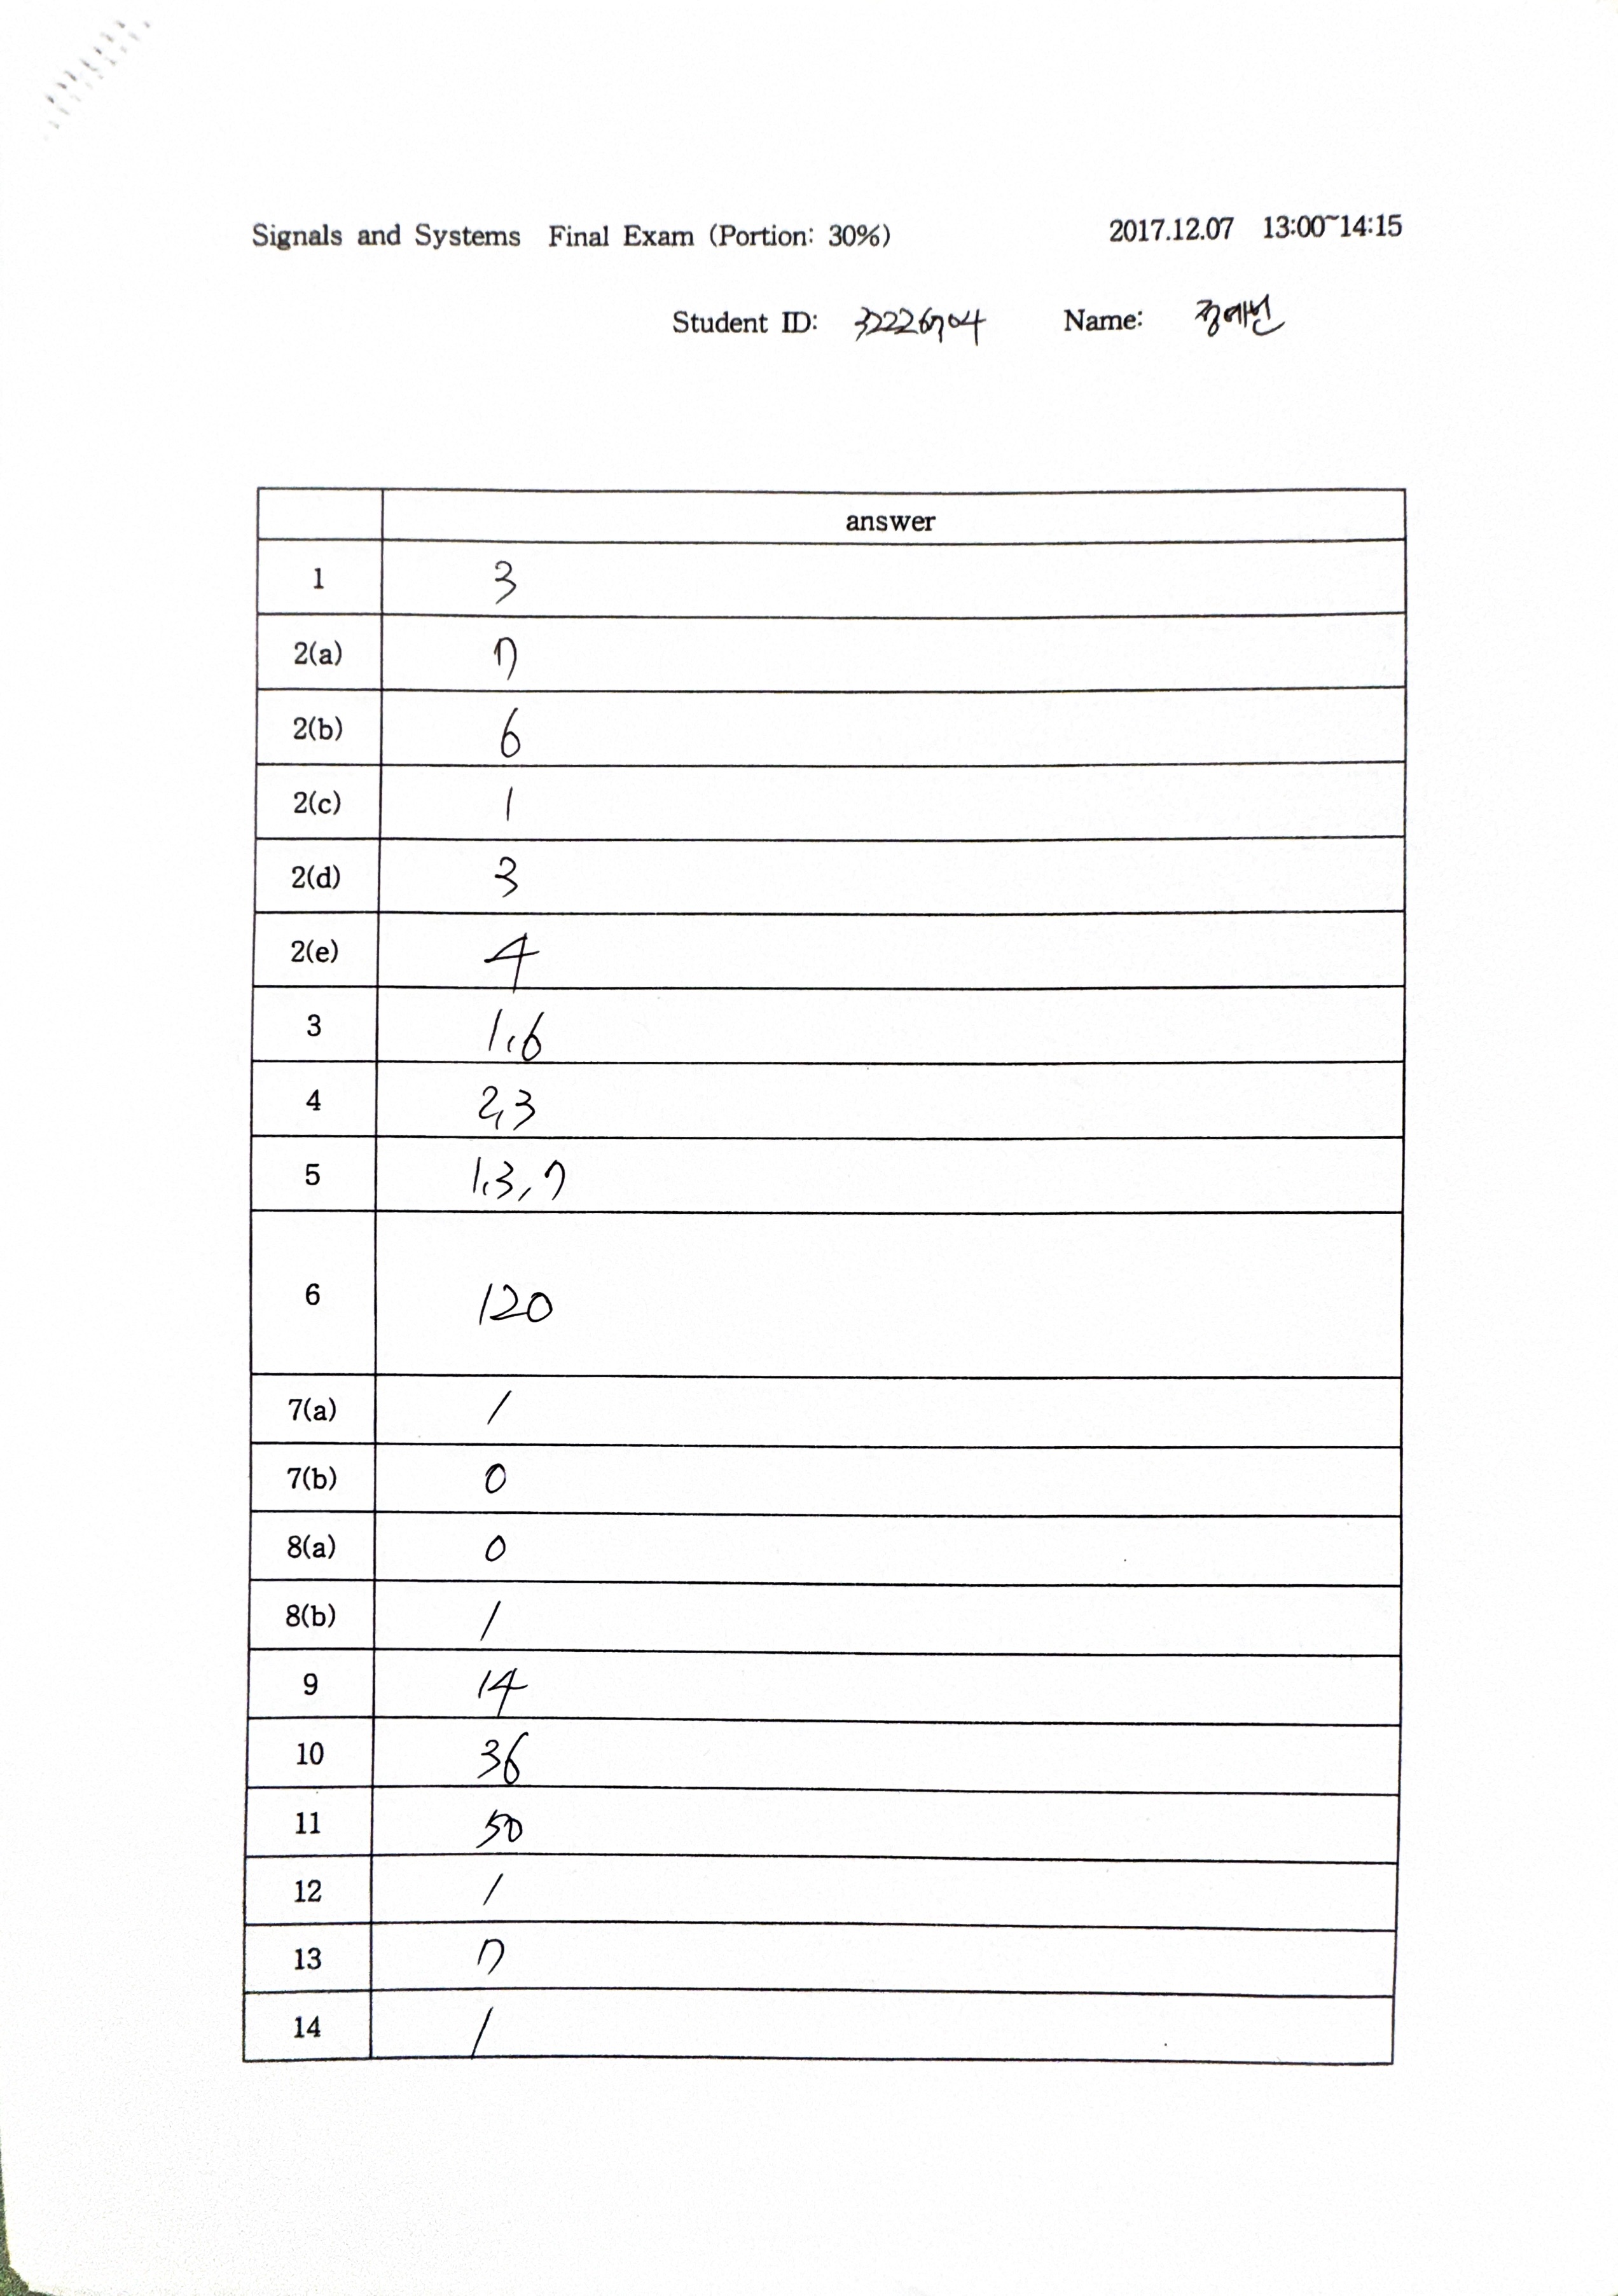 Signals and Systems Final Exam (Portion: 30%) 2017.12.07 13:00~14:15
Student ID: 32226704 Name: 정예빈
answer
1 3
2(a) 7
2(b) 6
2(c) 1
2(d) 3
2(e) 4
3 1,6
4 2,3
5 1,3,7
6 120
7(a) 1
7(b) 0
8(a) 0
8(b) 1
9 14
10 36
11 50
12 1
13 7
14 1